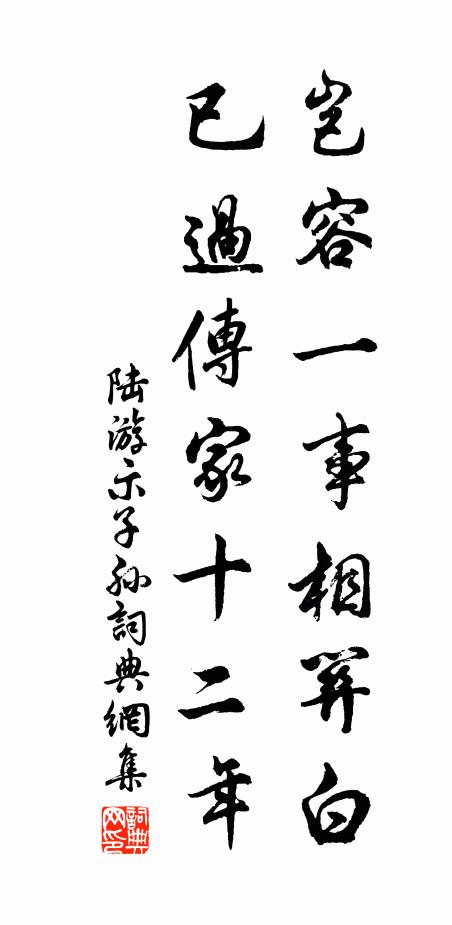 豈容一事相關白
已過傳家十二年
陸游示子孫詞典網集
詞典网印